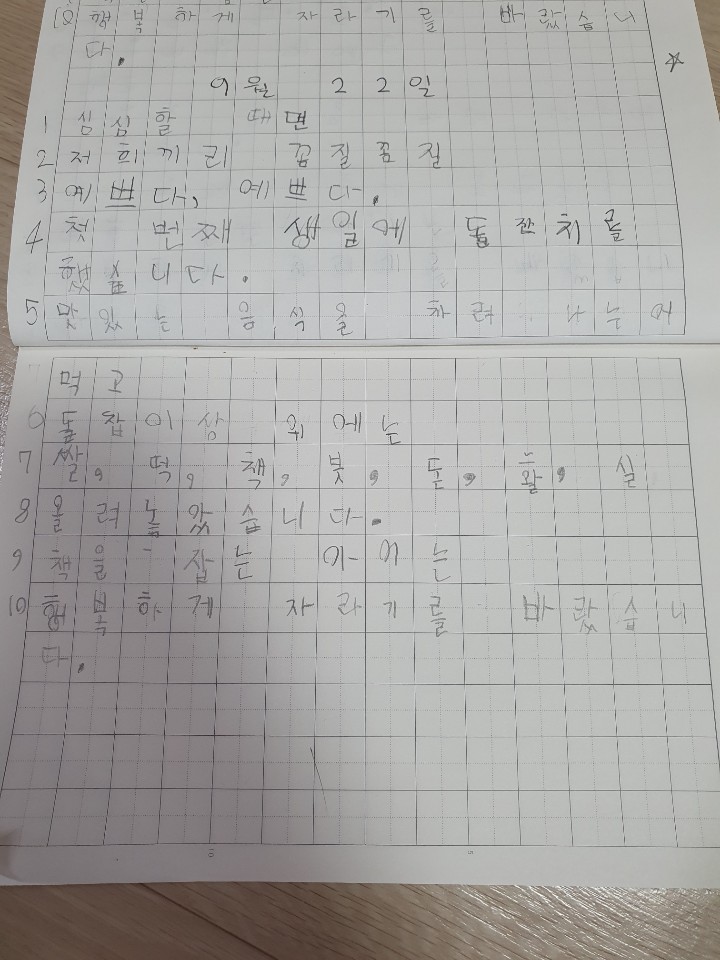 10 행복하게 자라기를 바랐습니
다.
9월 22일
1 심심할 때면
2 저희끼리 꼼질꼼질
3 예쁘다, 예쁘다.
4 첫 번째 생일에 돌잔치를
했습니다.
5 맛있는 음식을 차려 나누어
먹고
6 돌잡이상 위에는
7 쌀, 떡, 책, 붓, 돈, 활, 실
8 올려놓았습니다.
9 책을 잡는 아이는
10 행복하게 자라기를 바랐습니
다.